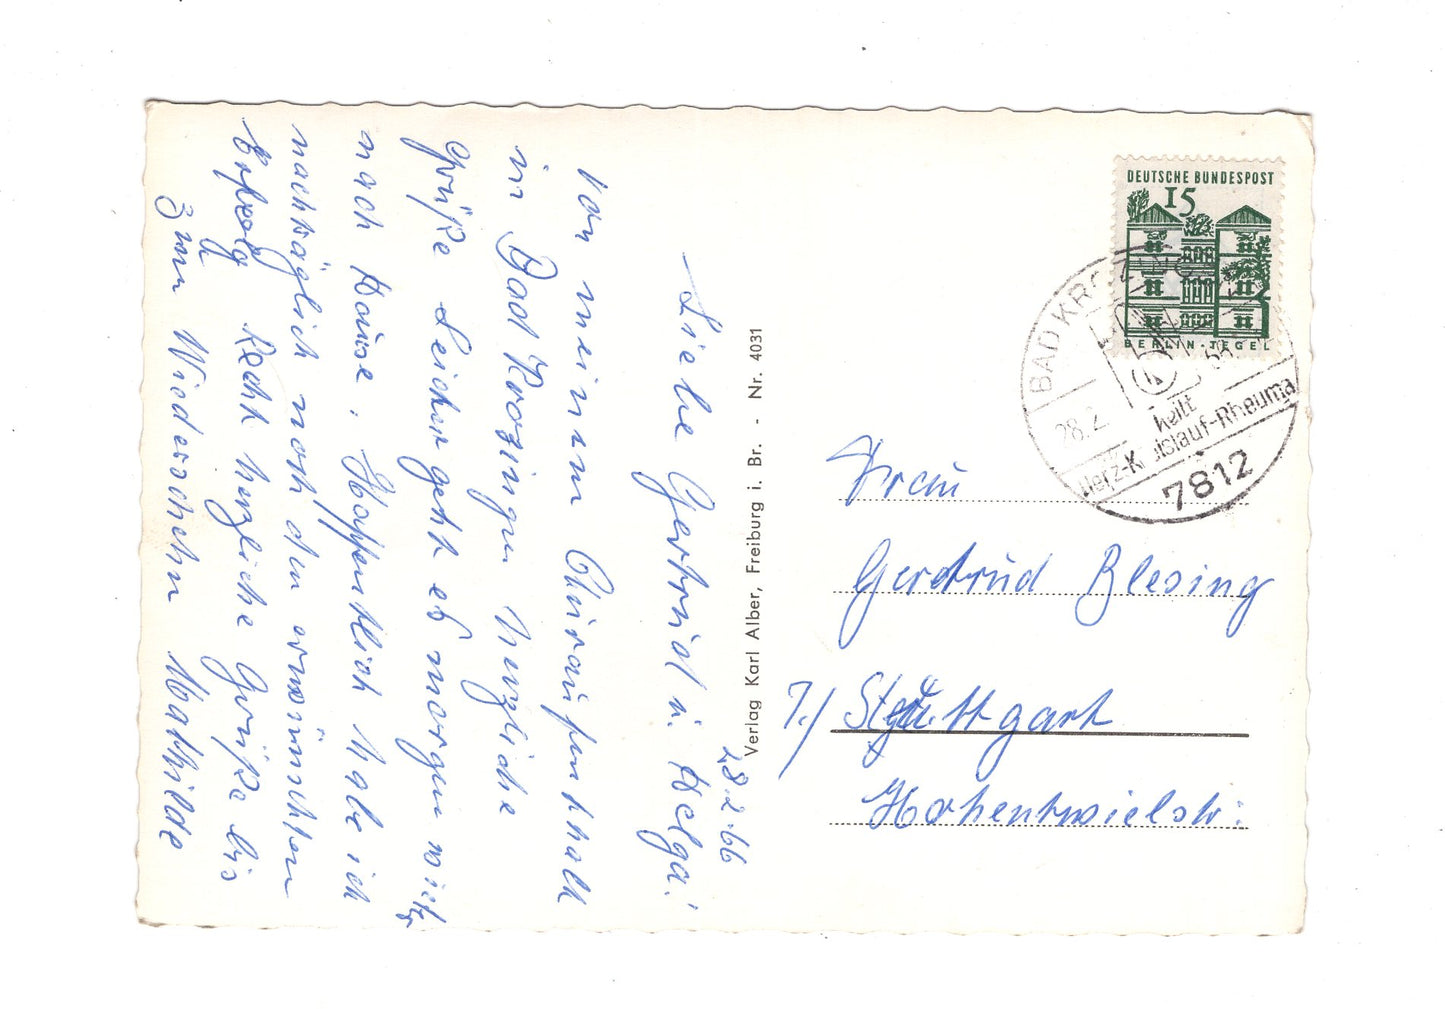 28.2.66
Liebe Gertrud u. Helga!
Von meinem Kuraufenthalt
in Bad Krozingen herzliche
Grüße. Leider geht es morgen wieder
nach Hause. Hoffentlich habe ich
nachträglich noch den erwünschten
Erfolg. Recht herzliche Grüße bis
zum Wiedersehen Mathilde
Verlag Karl Alber, Freiburg i. Br. - Nr. 4031
DEUTSCHE BUNDESPOST
15
BERLIN-TEGEL
BAD KROZINGEN
28.2.
heilt
Herz-Kreislauf-Rheuma
7812
Frau
Gertrud Blesing
7./ Stuttgart
Hohentwielstr: